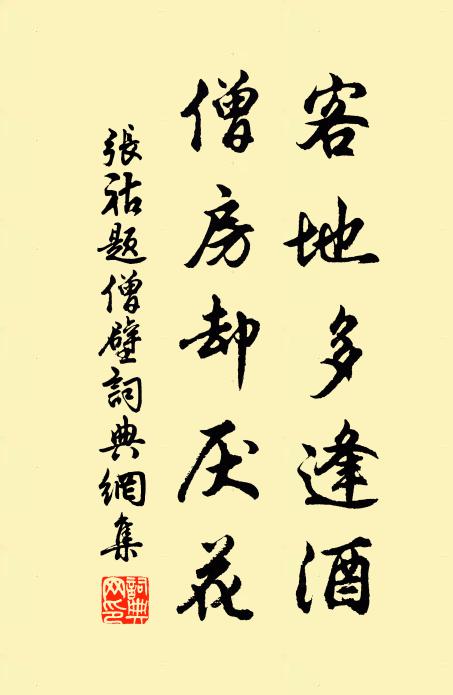 客地多逢酒
僧房却厌花
張祜題僧壁詞典網集
詞典網印